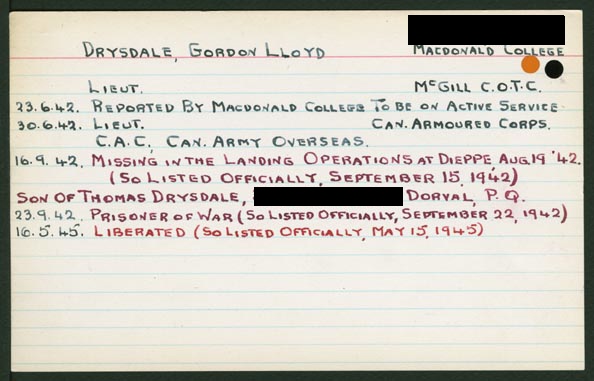 DRYSDALE, GORDON LLOYD
MACDONALD COLLEGE
LIEUT. McGILL C.O.T.C.
23.6.42. REPORTED BY MACDONALD COLLEGE TO BE ON ACTIVE SERVICE
30.6.42. LIEUT. CAN. ARMOURED CORPS.
C.A.C., CAN. ARMY OVERSEAS.
16.9.42. MISSING IN THE LANDING OPERATIONS AT DIEPPE AUG. 19 '42.
(SO LISTED OFFICIALLY, SEPTEMBER 15, 1942)
SON OF THOMAS DRYSDALE, DORVAL, P.Q.
23.9.42. PRISONER OF WAR (SO LISTED OFFICIALLY, SEPTEMBER 22, 1942)
16.5.45. LIBERATED (SO LISTED OFFICIALLY, MAY 15, 1945)